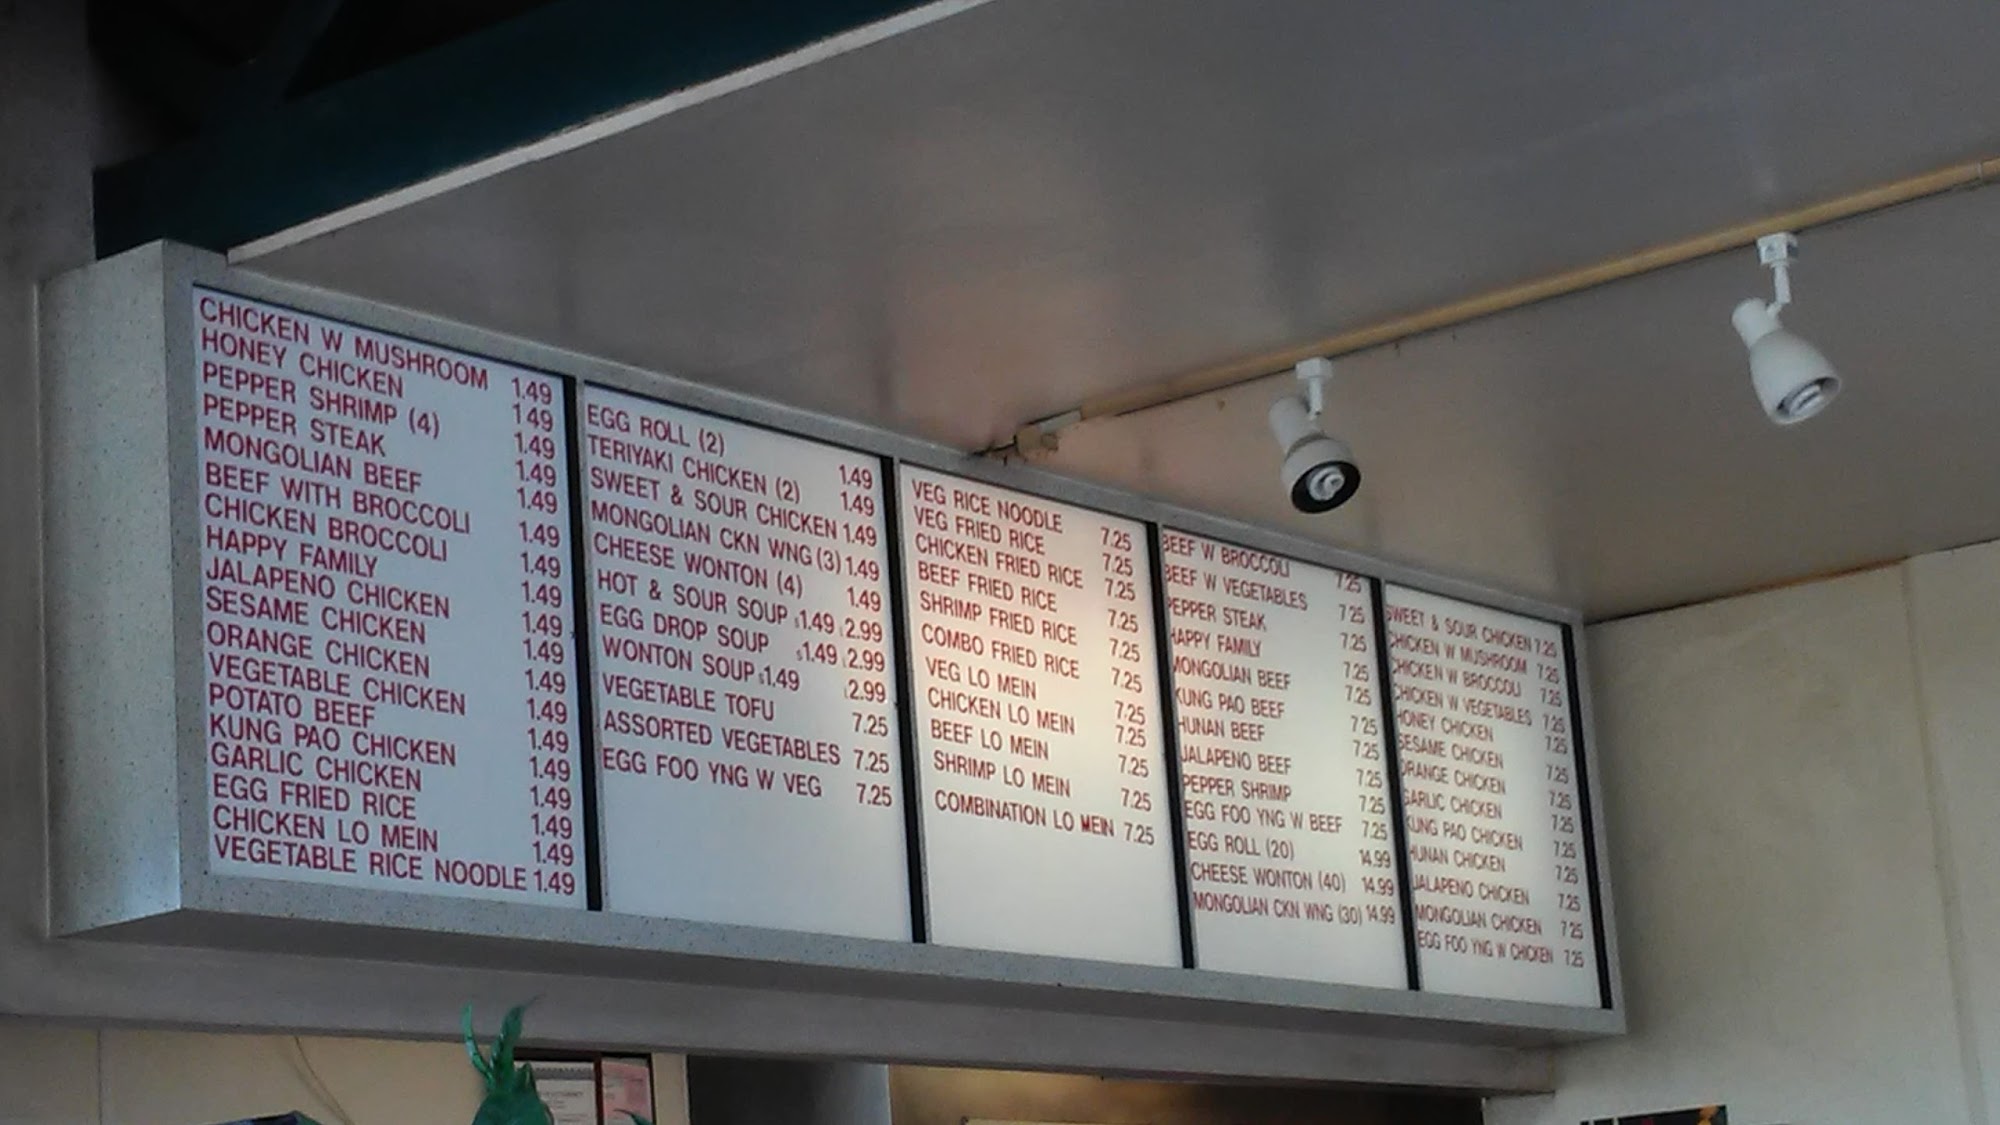 CHICKEN W MUSHROOM 1.49
HONEY CHICKEN 1.49
PEPPER SHRIMP (4) 1.49
PEPPER STEAK 1.49
MONGOLIAN BEEF 1.49
BEEF WITH BROCCOLI 1.49
CHICKEN BROCCOLI 1.49
HAPPY FAMILY 1.49
JALAPENO CHICKEN 1.49
SESAME CHICKEN 1.49
ORANGE CHICKEN 1.49
VEGETABLE CHICKEN 1.49
POTATO BEEF 1.49
KUNG PAO CHICKEN 1.49
GARLIC CHICKEN 1.49
EGG FRIED RICE 1.49
CHICKEN LO MEIN 1.49
VEGETABLE RICE NOODLE 1.49
EGG ROLL (2) 1.49
TERIYAKI CHICKEN (2) 1.49
SWEET & SOUR CHICKEN 1.49
MONGOLIAN CKN WNG (3) 1.49
CHEESE WONTON (4) 1.49
HOT & SOUR SOUP S1.49 L2.99
EGG DROP SOUP S1.49 L2.99
WONTON SOUP S1.49 L2.99
VEGETABLE TOFU 7.25
ASSORTED VEGETABLES 7.25
EGG FOO YNG W VEG 7.25
VEG RICE NOODLE 7.25
VEG FRIED RICE 7.25
CHICKEN FRIED RICE 7.25
BEEF FRIED RICE 7.25
SHRIMP FRIED RICE 7.25
COMBO FRIED RICE 7.25
VEG LO MEIN 7.25
CHICKEN LO MEIN 7.25
BEEF LO MEIN 7.25
SHRIMP LO MEIN 7.25
COMBINATION LO MEIN 7.25
BEEF W BROCCOLI 7.25
BEEF W VEGETABLES 7.25
PEPPER STEAK 7.25
HAPPY FAMILY 7.25
MONGOLIAN BEEF 7.25
KUNG PAO BEEF 7.25
HUNAN BEEF 7.25
JALAPENO BEEF 7.25
PEPPER SHRIMP 7.25
EGG FOO YNG W BEEF 7.25
EGG ROLL (20) 14.99
CHEESE WONTON (40) 14.99
MONGOLIAN CKN WNG (30) 14.99
SWEET & SOUR CHICKEN 7.25
CHICKEN W MUSHROOM 7.25
CHICKEN W BROCCOLI 7.25
CHICKEN W VEGETABLES 7.25
HONEY CHICKEN 7.25
SESAME CHICKEN 7.25
ORANGE CHICKEN 7.25
GARLIC CHICKEN 7.25
KUNG PAO CHICKEN 7.25
HUNAN CHICKEN 7.25
JALAPENO CHICKEN 7.25
MONGOLIAN CHICKEN 7.25
EGG FOO YNG W CHICKEN 7.25